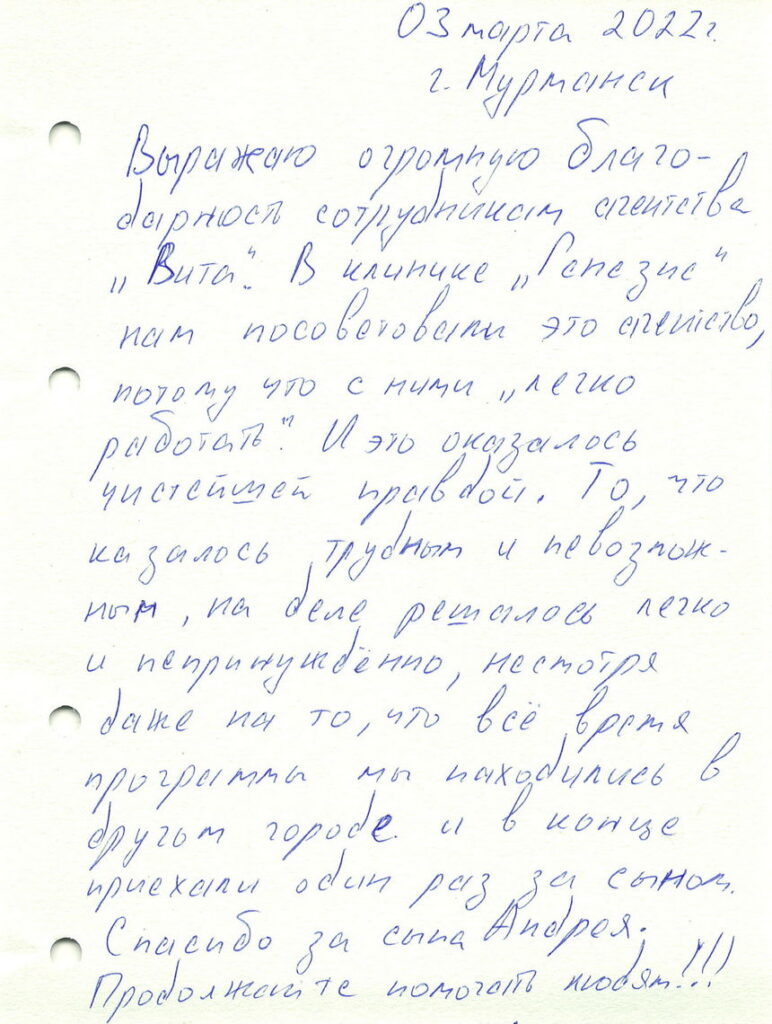 03 марта 2022г.
г. Мурманск
Выражаю огромную благо-
дарность сотрудникам агентства
„Вита". В клинике „Генезис"
нам посоветовали это агентство,
потому что с ними „легко
работать". И это оказалось
чистейшей правдой. То, что
казалось трудным и невозмож-
ным, на деле решалось легко
и непринуждённо, несмотря
даже на то, что всё время
программы мы находились в
другом городе и в конце
приехали один раз за сыном.
Спасибо за сына Андрея.
Продолжайте помогать людям!!!